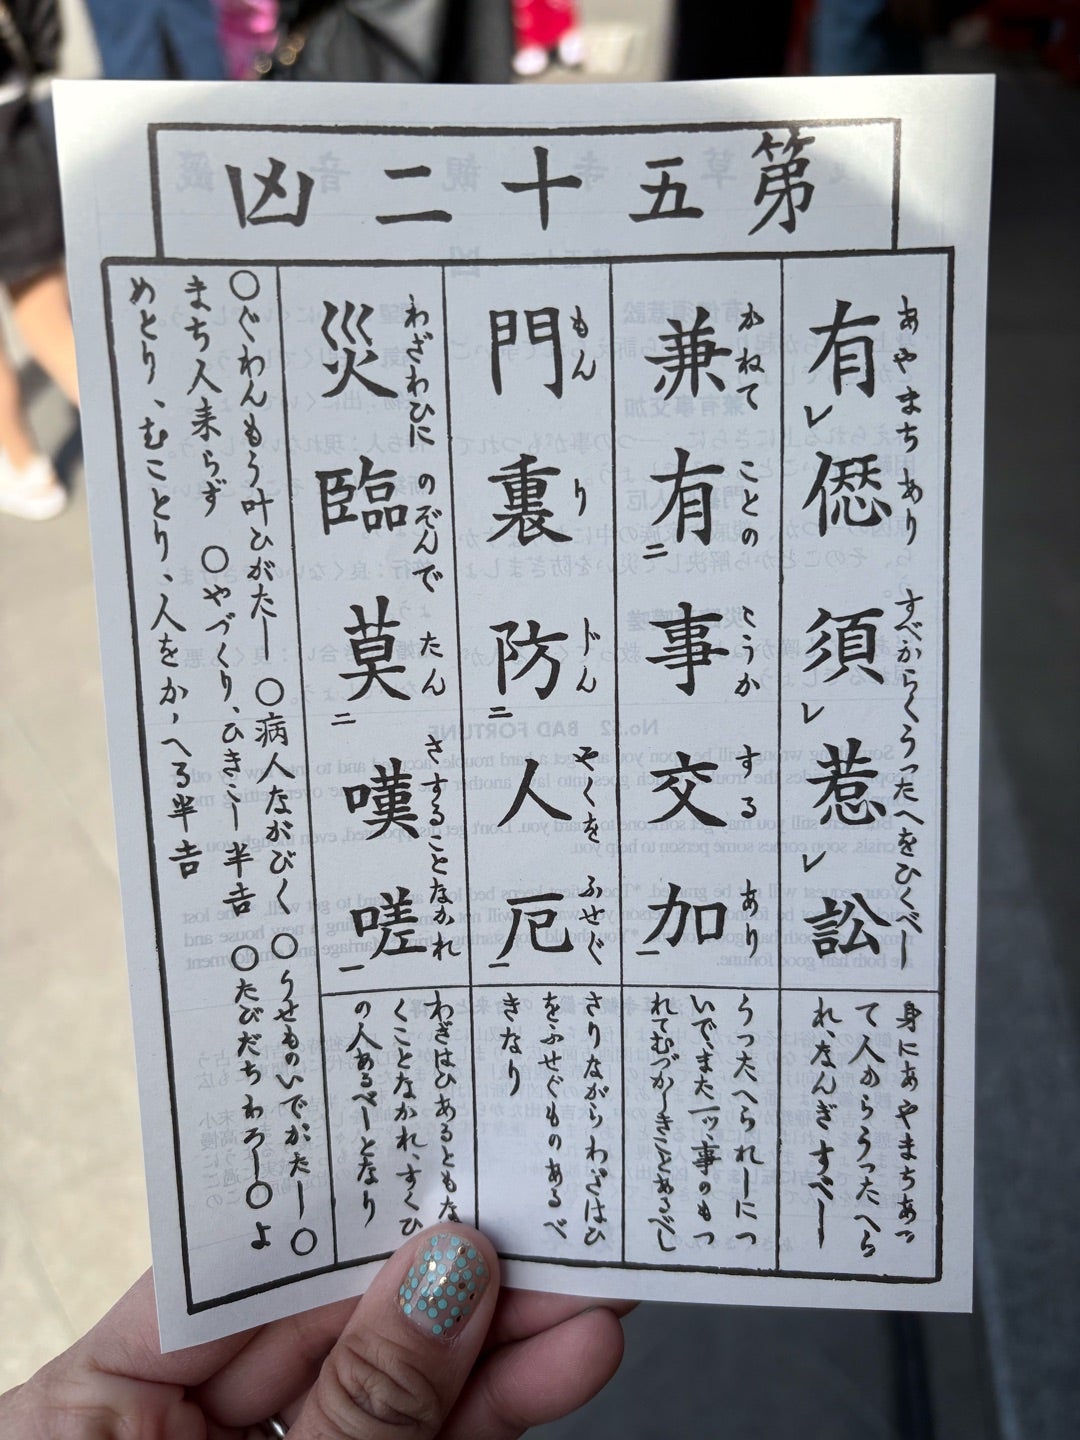 第五十二凶
有僁須惹訟
あやまちあり すべからくうつたへをひくべし
レ レ レ
身にあやまちあつ
て人からうつたへら
れ、なんぎすべし
兼有事交加
かねて ことの こうか する あり
二 一
うつたへられしにつ
いで、また一ッ、事のもつ
れてむづかしきことあるべし
門裏防人厄
もん り じん やくを ふせぐ
二 一
さりながらわざはひ
をふせぐものあるべ
きなり
災臨莫嘆嗟
わざわひに のぞんで たん さすることなかれ
二 一
わざはひあるともな
くことなかれ、すくひ
の人あるべしとなり
○ぐわんもう叶ひがたし ○病人ながびく ○うせものいでがたし○
まち人来らず ○やづくり、ひきこし半吉 ○たびだちわろし○よ
めとり、むことり、人をかゝへる半吉